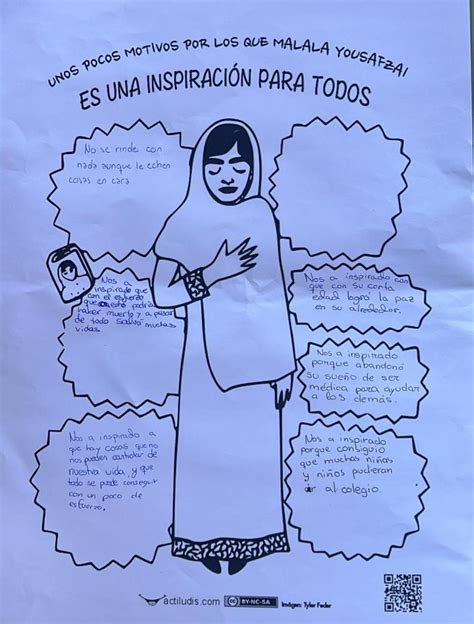 UNOS POCOS MOTIVOS POR LOS QUE MALALA YOUSAFZAI
ES UNA INSPIRACIÓN PARA TODOS
No se rinde con
nada aunque le echen
cosas en cara
Nos a
inspirado que
con el esfuerzo
que podria
haber muerto y a pesar
de todo salvó muchas
vidas.
Nos a inspirado a
que hay cosas que no
nos pueden controlar de
nuestra vida, y que
todo se puede conseguir
con un poco de
esfuerzo.
Nos a inspirado con
que con su corta
edad logró la paz
en su alrededor.
Nos a inspirado
porque abandonó
su sueño de ser
médica para ayudar
a los demás.
Nos a inspirado
porque consiguio
que muchas niñas
y niños pudieran
ir al colegio.
actiludis.com CC BY-NC-SA Imágen: Tyler Feder